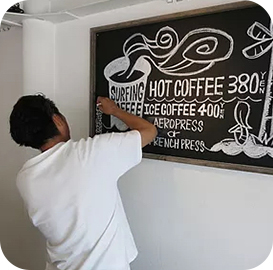 SURFING
COFFEE
HOT COFFEE 380 YEN
ICE COFFEE 400 YEN
AEROPRESS
or
FRENCH PRESS